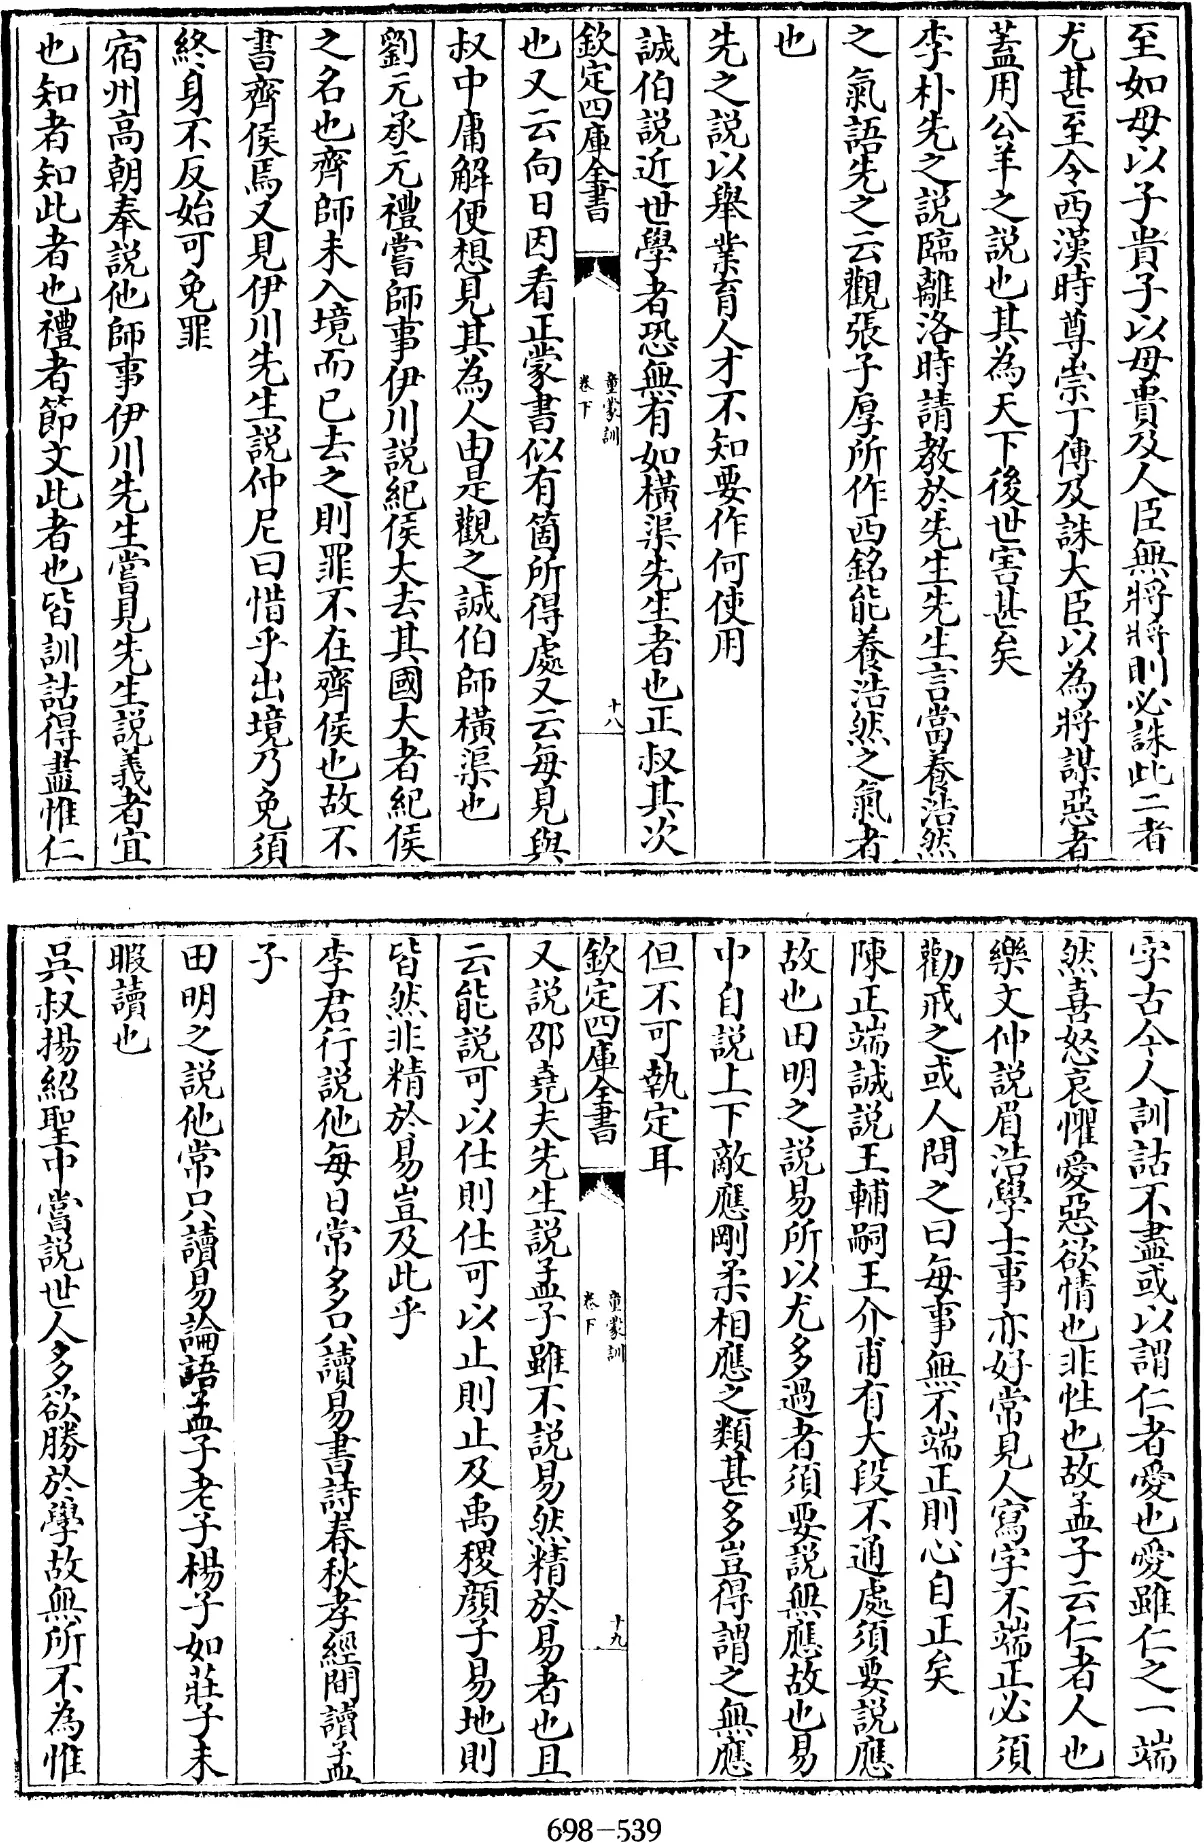 至如母以子貴子以母貴及人臣無將將則必誅此二者
尤甚至令西漢時尊崇丁傅及誅大臣以為將謀惡者
蓋用公羊之説也其為天下後世害甚矣
李朴先之説臨離洛時請教於先生先生言當養浩然
之氣語先之云觀張子厚所作西銘能養浩然之氣者
也
先之説以舉業育人才不知要作何使用
誠伯説近世學者恐無有如横渠先生者也正叔其次
欽定四庫全書
童蒙訓
卷下
十八
也又云向日因看正蒙書似有箇所得處又云每見與
叔中庸解便想見其為人由是觀之誠伯師横渠也
劉元承元禮嘗師事伊川説紀侯大去其國大者紀侯
之名也齊師未入境而已去之則罪不在齊侯也故不
書齊侯焉又見伊川先生説仲尼曰惜乎出境乃免須
終身不反始可免罪
宿州高朝奉説他師事伊川先生嘗見先生説義者宜
也知者知此者也禮者節文此者也皆訓詁得盡惟仁
字古今人訓詁不盡或以謂仁者愛也愛雖仁之一端
然喜怒哀懼愛惡欲情也非性也故孟子云仁者人也
樂文仲説眉浩學士事亦好常見人寫字不端正必須
勸戒之或人問之曰每事無不端正則心自正矣
陳正端誠説王輔嗣王介甫有大段不通處須要説應
故也田明之説易所以尤多過者須要説無應故也易
中自説上下敵應剛柔相應之類甚多豈得謂之無應
但不可執定耳
欽定四庫全書
童蒙訓
卷下
十九
又説邵堯夫先生説孟子雖不説易然精於易者也且
云能説可以仕則仕可以止則止及禹稷顔子易地則
皆然非精於易豈及此乎
李君行説他每日常多只讀易書詩春秋孝經間讀孟
子
田明之説他常只讀易論語孟子老子楊子如莊子未
暇讀也
吳叔揚紹聖中嘗説世人多欲勝於學故無所不為惟
698-539